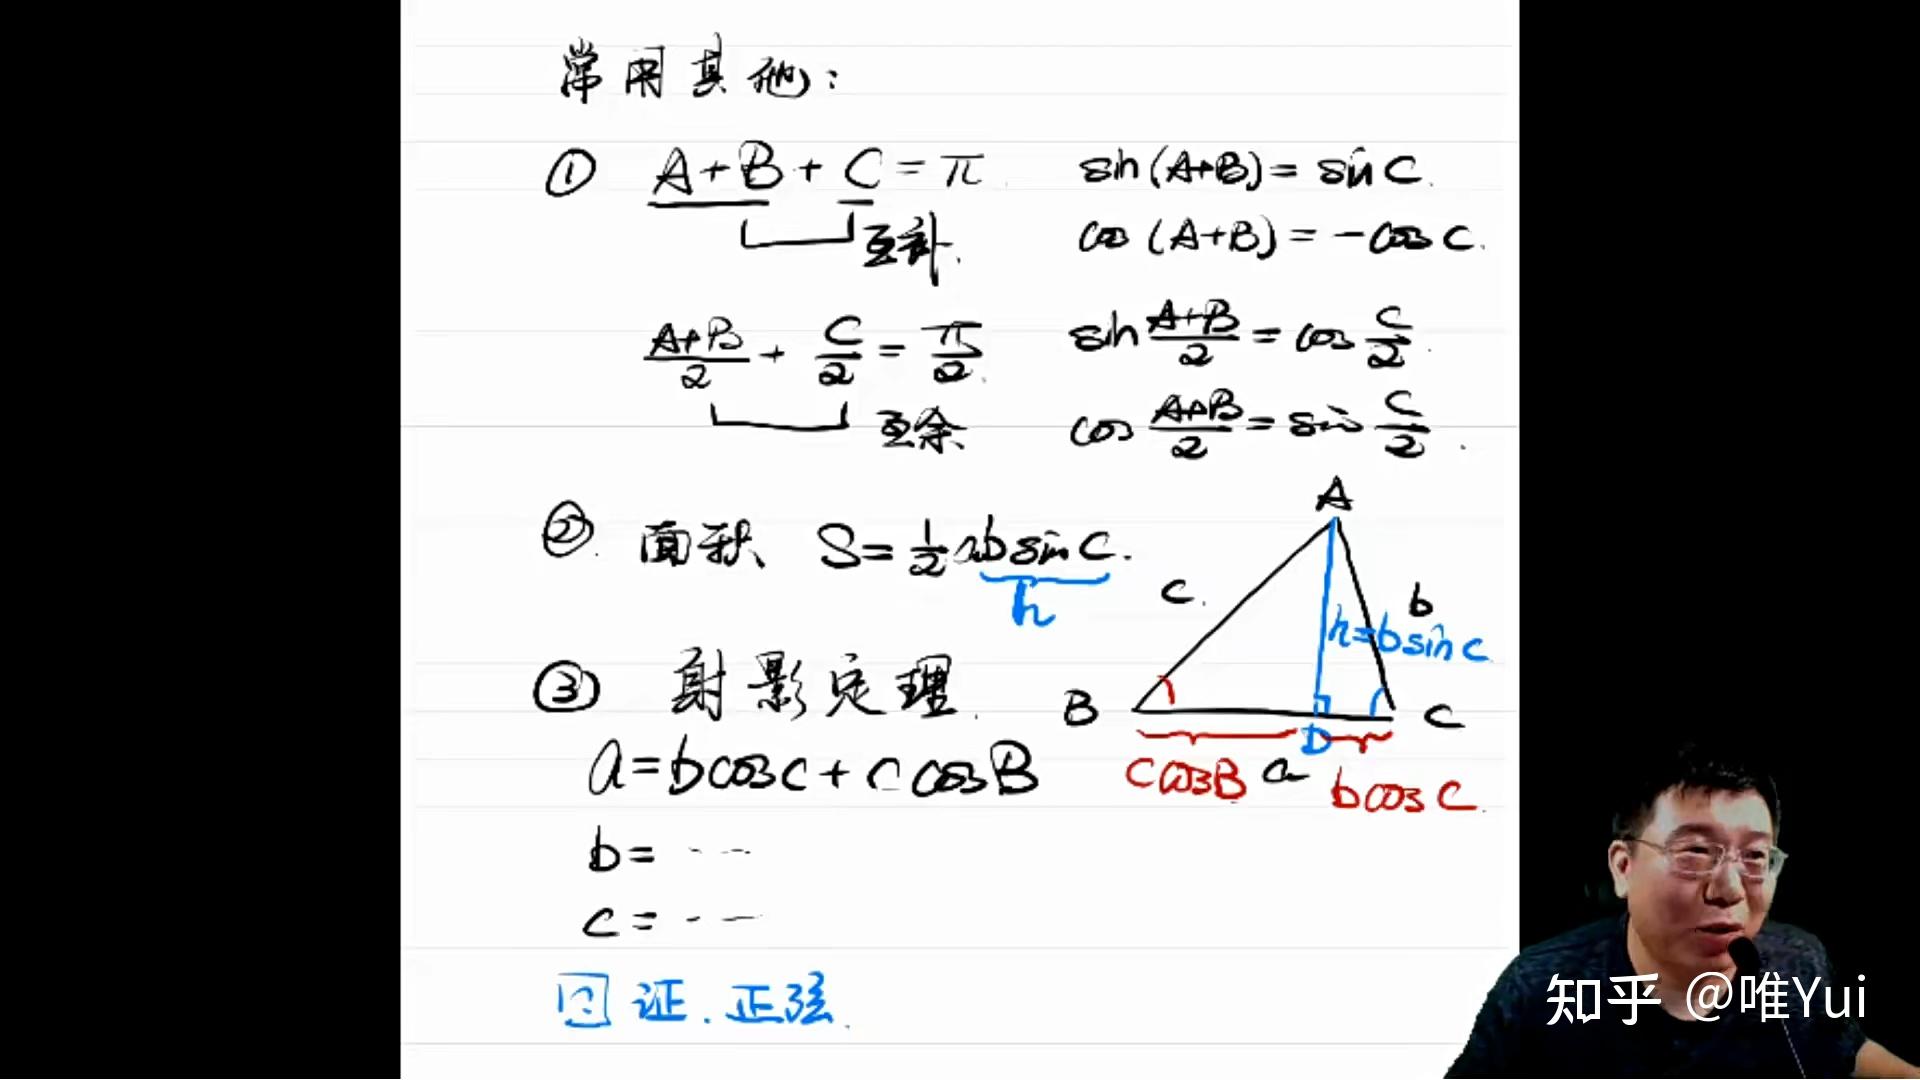 常用其他:
① A+B+C=π sin(A+B)=sinC.
互补. cos(A+B)=-cosC.
(A+B)/2 + C/2 = π/2. sin (A+B)/2 = cos C/2.
互余 cos (A+B)/2 = sin C/2.
② 面积 S=1/2 absinC.
h
A
c. b
h=bsinC
B C
D
cosB a bcosC.
③ 射影定理.
a=bcosC+ccosB
b= ----
c= ----
证.正弦.
知乎 @唯Yui